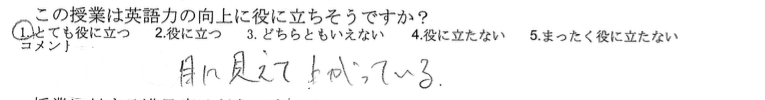 この授業は英語力の向上に役に立ちそうですか？
1.とても役に立つ 2.役に立つ 3. どちらともいえない 4.役に立たない 5.まったく役に立たない
コメント
目に見えて上がっている.